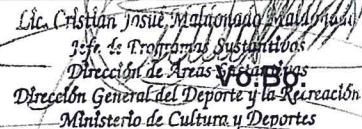 Lic. Cristian Josué Maldonado Maldonado
Jefe de Programas Sustantivos
Dirección de Áreas Sustantivas
Vo.Bo.
Dirección General del Deporte y la Recreación
Ministerio de Cultura y Deportes